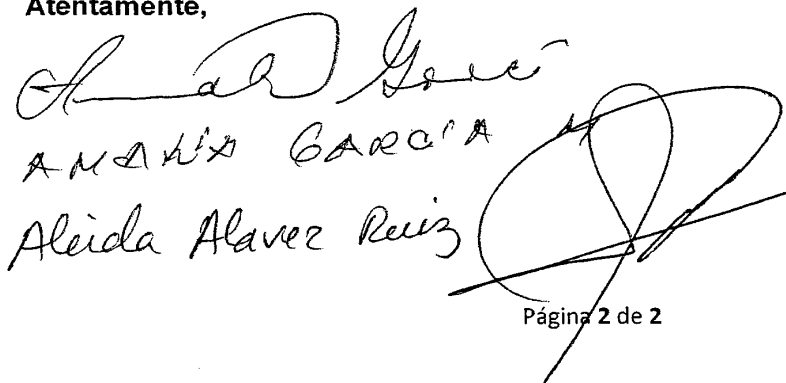 Atentamente,
AMALIA GARCÍA M
Aleida Alavez Ruiz
Página 2 de 2